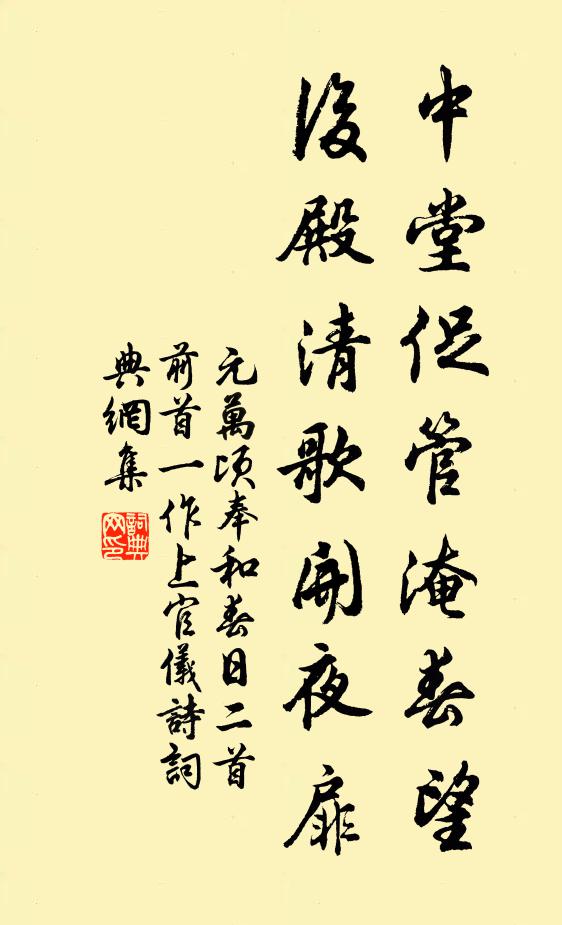 中堂促管淹春望
後殿清歌開夜扉
元萬頃奉和春日二首
前首一作上官儀詩詞
典網集
詞典網印